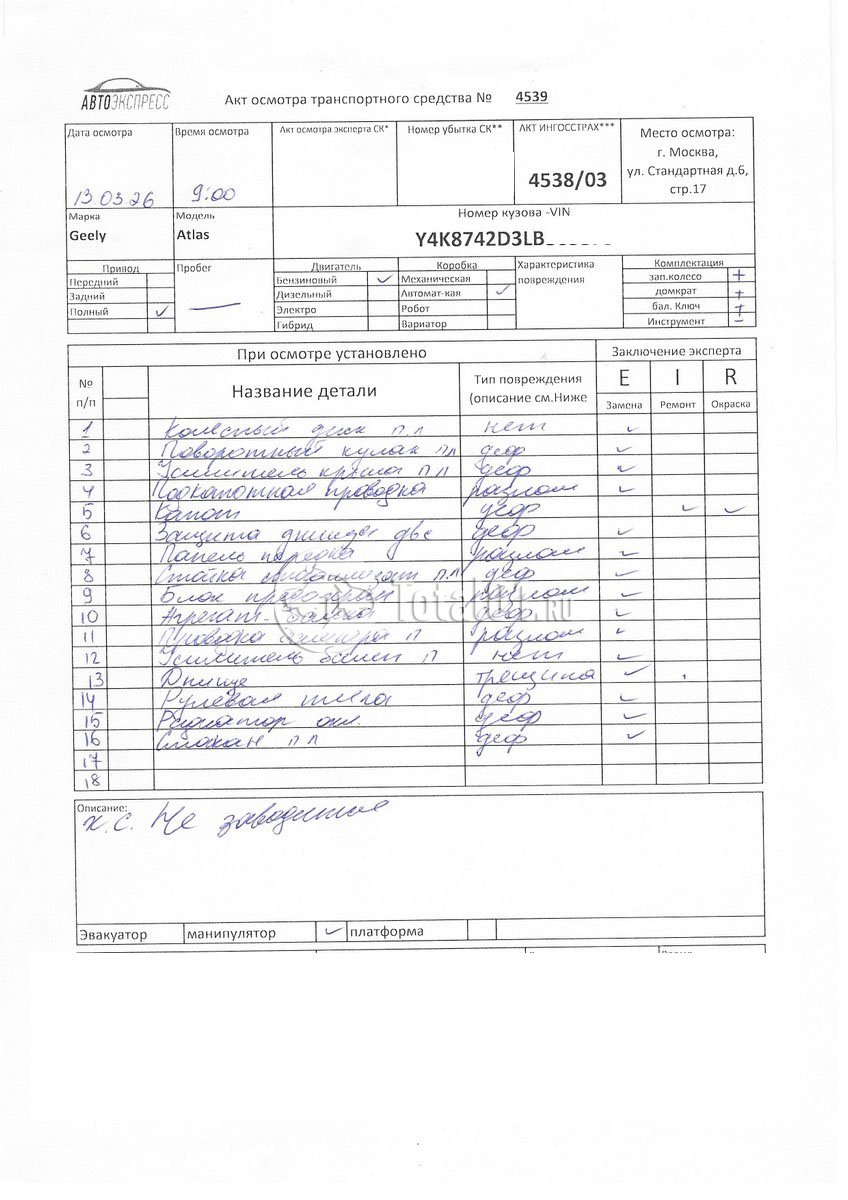 АВТОЭКСПРЕСС
Акт осмотра транспортного средства № 4539
Дата осмотра
13.03.26
Время осмотра
9:00
Акт осмотра эксперта СК*
Номер убытка СК**
АКТ ИНГОССТРАХ***
4538/03
Место осмотра:
г. Москва,
ул. Стандартная д.6,
стр.17
Марка
Geely
Модель
Atlas
Номер кузова -VIN
Y4K8742D3LB_ _ _ _ _ _
Привод
Передний
Задний
Полный ✓
Пробег
—
Двигатель
Бензиновый ✓
Дизельный
Электро
Гибрид
Коробка
Механическая
Автомат-кая ✓
Робот
Вариатор
Характеристика
повреждения
Комплектация
зап.колесо +
домкрат +
бал. Ключ +
Инструмент –
При осмотре установлено
Заключение эксперта
№
п/п
Название детали
Тип повреждения
(описание см.Ниже
E I R
Замена Ремонт Окраска
1 Колесный диск п.л нет ✓
2 Поворотный кулак пл деф ✓
3 Усилитель крыла пл деф ✓
4 Подкапотная проводка разлом ✓
5 Капот деф ✓ ✓
6 Защита двс деф ✓
7 Панель передка разлом ✓
8 Стойка стабилизат п.л деф ✓
9 Блок предохран разлом ✓
10 Агрегат деф ✓
11 Проводка п разлом ✓
12 Усилитель п нет ✓
13 Днище трещина ✓
14 Рулевая тяга деф ✓
15 Радиатор охл. деф ✓
16 Стакан пл деф ✓
17
18
TotalCar.RU
Описание:
х.с. Не заводится
Эвакуатор манипулятор ✓ платформа